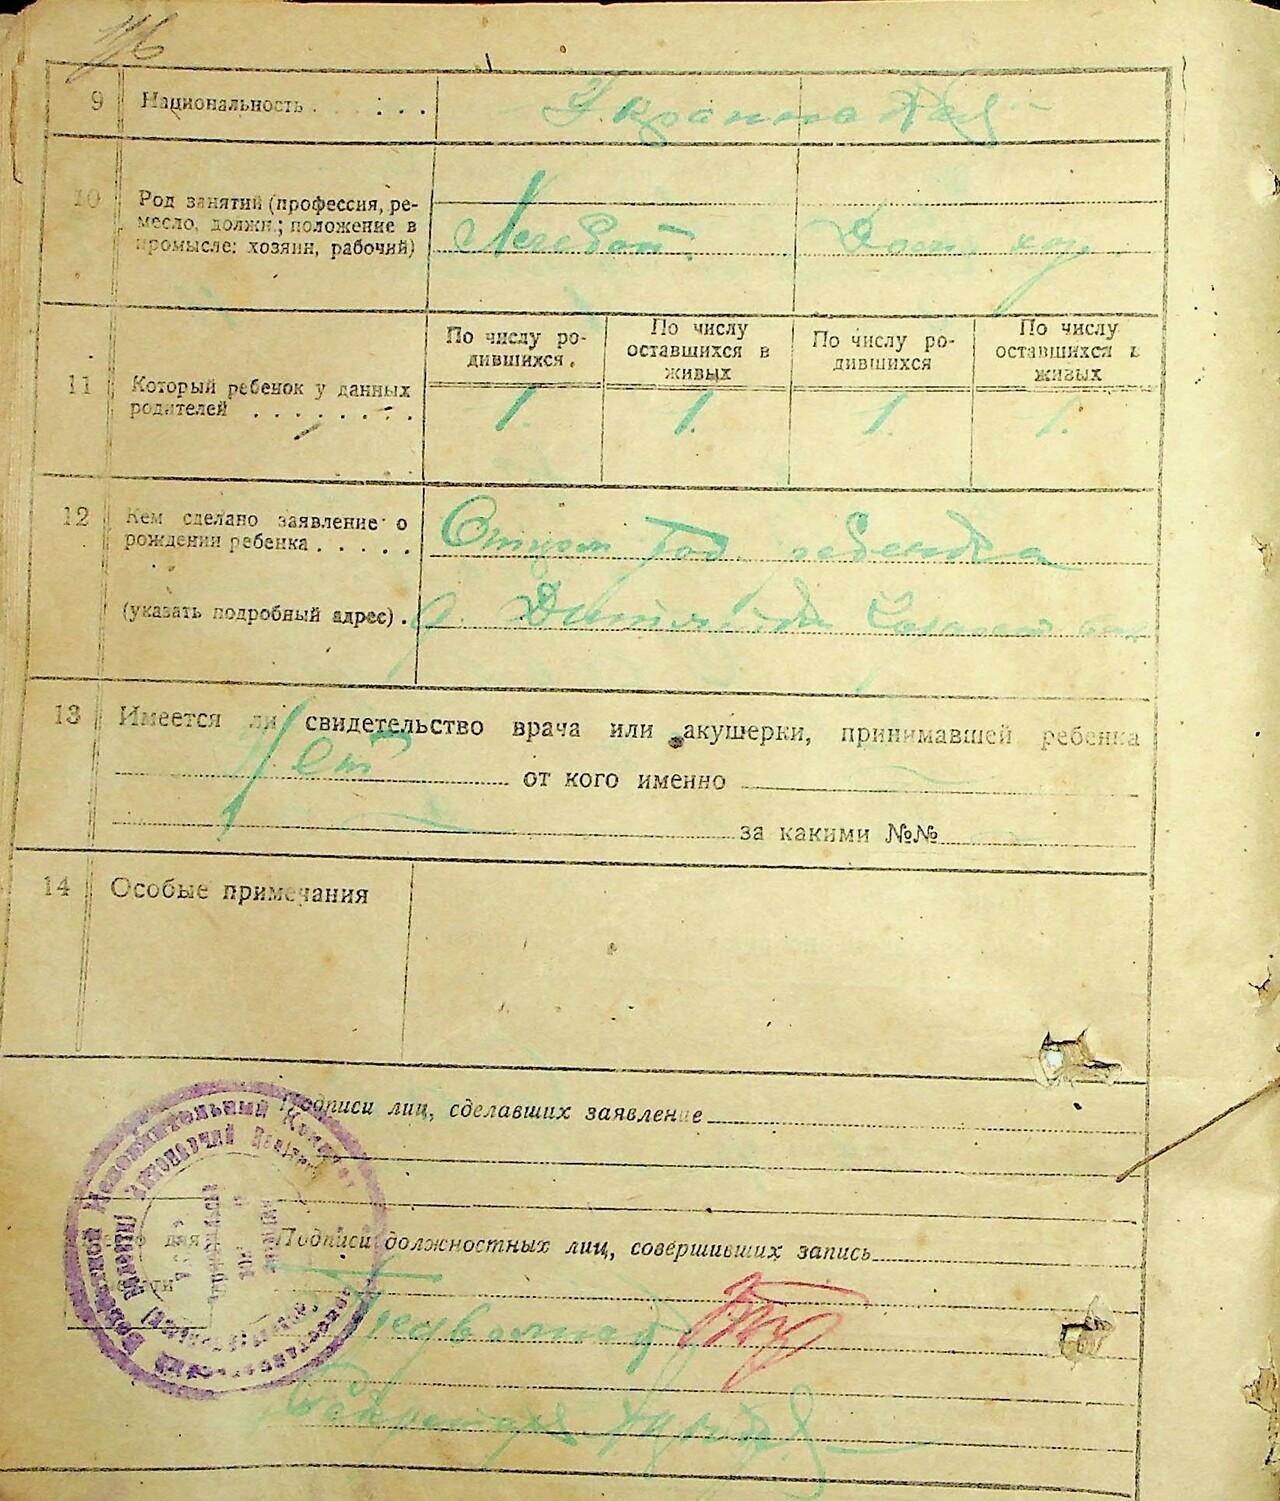 9 Национальность . . . . . Украинская
10 Род занятий (профессия, ре-
месло, должн.; положение в
промысле: хозяин, рабочий)
Легевой Дом. хоз.
По числу ро-
дившихся.
По числу
оставшихся в
живых
По числу ро-
дившихся
По числу
оставшихся в
живых
11 Который ребенок у данных
родителей . . . . . . . .
1. 1. 1. 1.
12 Кем сделано заявление о
рождении ребенка . . . . .
Отцом род. ребенка
(указать подробный адрес) .
13 Имеется ли свидетельство врача или акушерки, принимавшей ребенка
Нет от кого именно
за какими №№
14 Особые примечания
Подписи лиц, сделавших заявление
Подписи должностных лиц, совершивших запись
Предволиспол
Секретарь